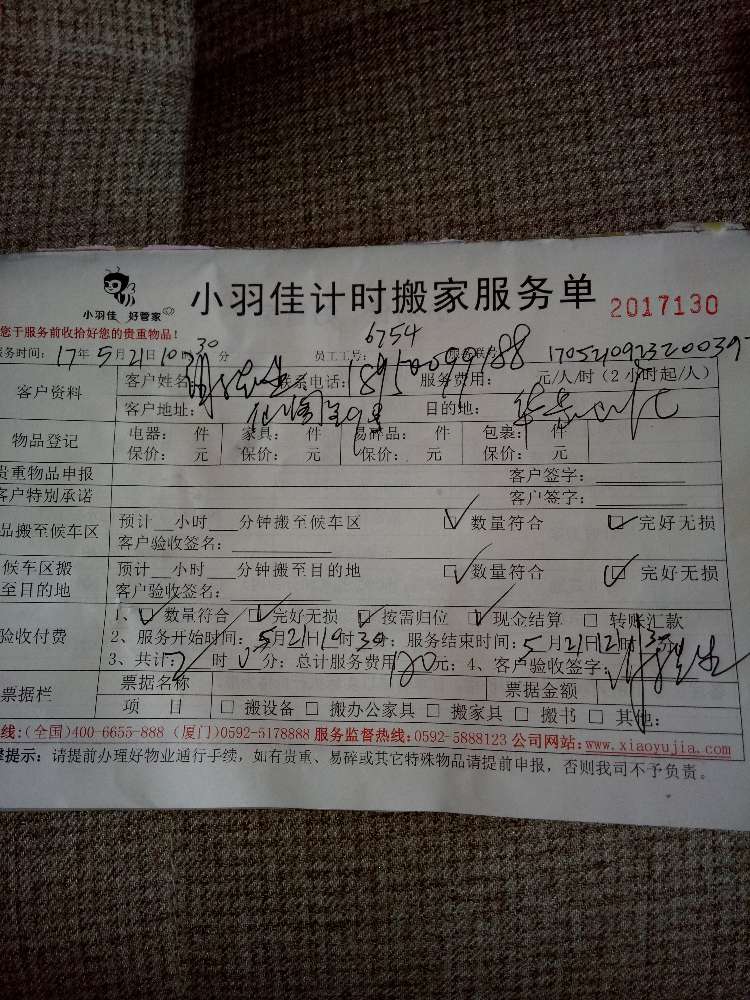 小羽佳 好管家
小羽佳计时搬家服务单 2017130
您于服务前收拾好您的贵重物品!
务时间: 17年5月21日10时30分 员工工号: 6754 170521092320039
客户资料 客户姓名: 联系电话: 服务费用: 元/人/时(2小时起/人)
客户地址: 目的地:
物品登记 电器: 件 家具: 件 易碎品: 件 包裹: 件
保价: 元 保价: 元 保价: 元 保价: 元
贵重物品申报 客户签字:
客户特别承诺 客户签字:
品搬至候车区 预计 小时 分钟搬至候车区 数量符合 完好无损
客户验收签名:
候车区搬至目的地 预计 小时 分钟搬至目的地 数量符合 完好无损
客户验收签名:
验收付费 1、数量符合 完好无损 按需归位 现金结算 转账汇款
2、服务开始时间: 5月21日10时30分; 服务结束时间: 5月21日12时
3、共计: 2时0分; 总计服务费用120元; 4、客户验收签字:
票据栏 票据名称 票据金额
项 目 搬设备 搬办公家具 搬家具 搬书 其他:
线:(全国)400-6655-888 (厦门)0592-5178888 服务监督热线:0592-5888123 公司网站:www.xiaoyujia.com
提示: 请提前办理好物业通行手续, 如有贵重、易碎或其它特殊物品请提前申报, 否则我司不予负责。